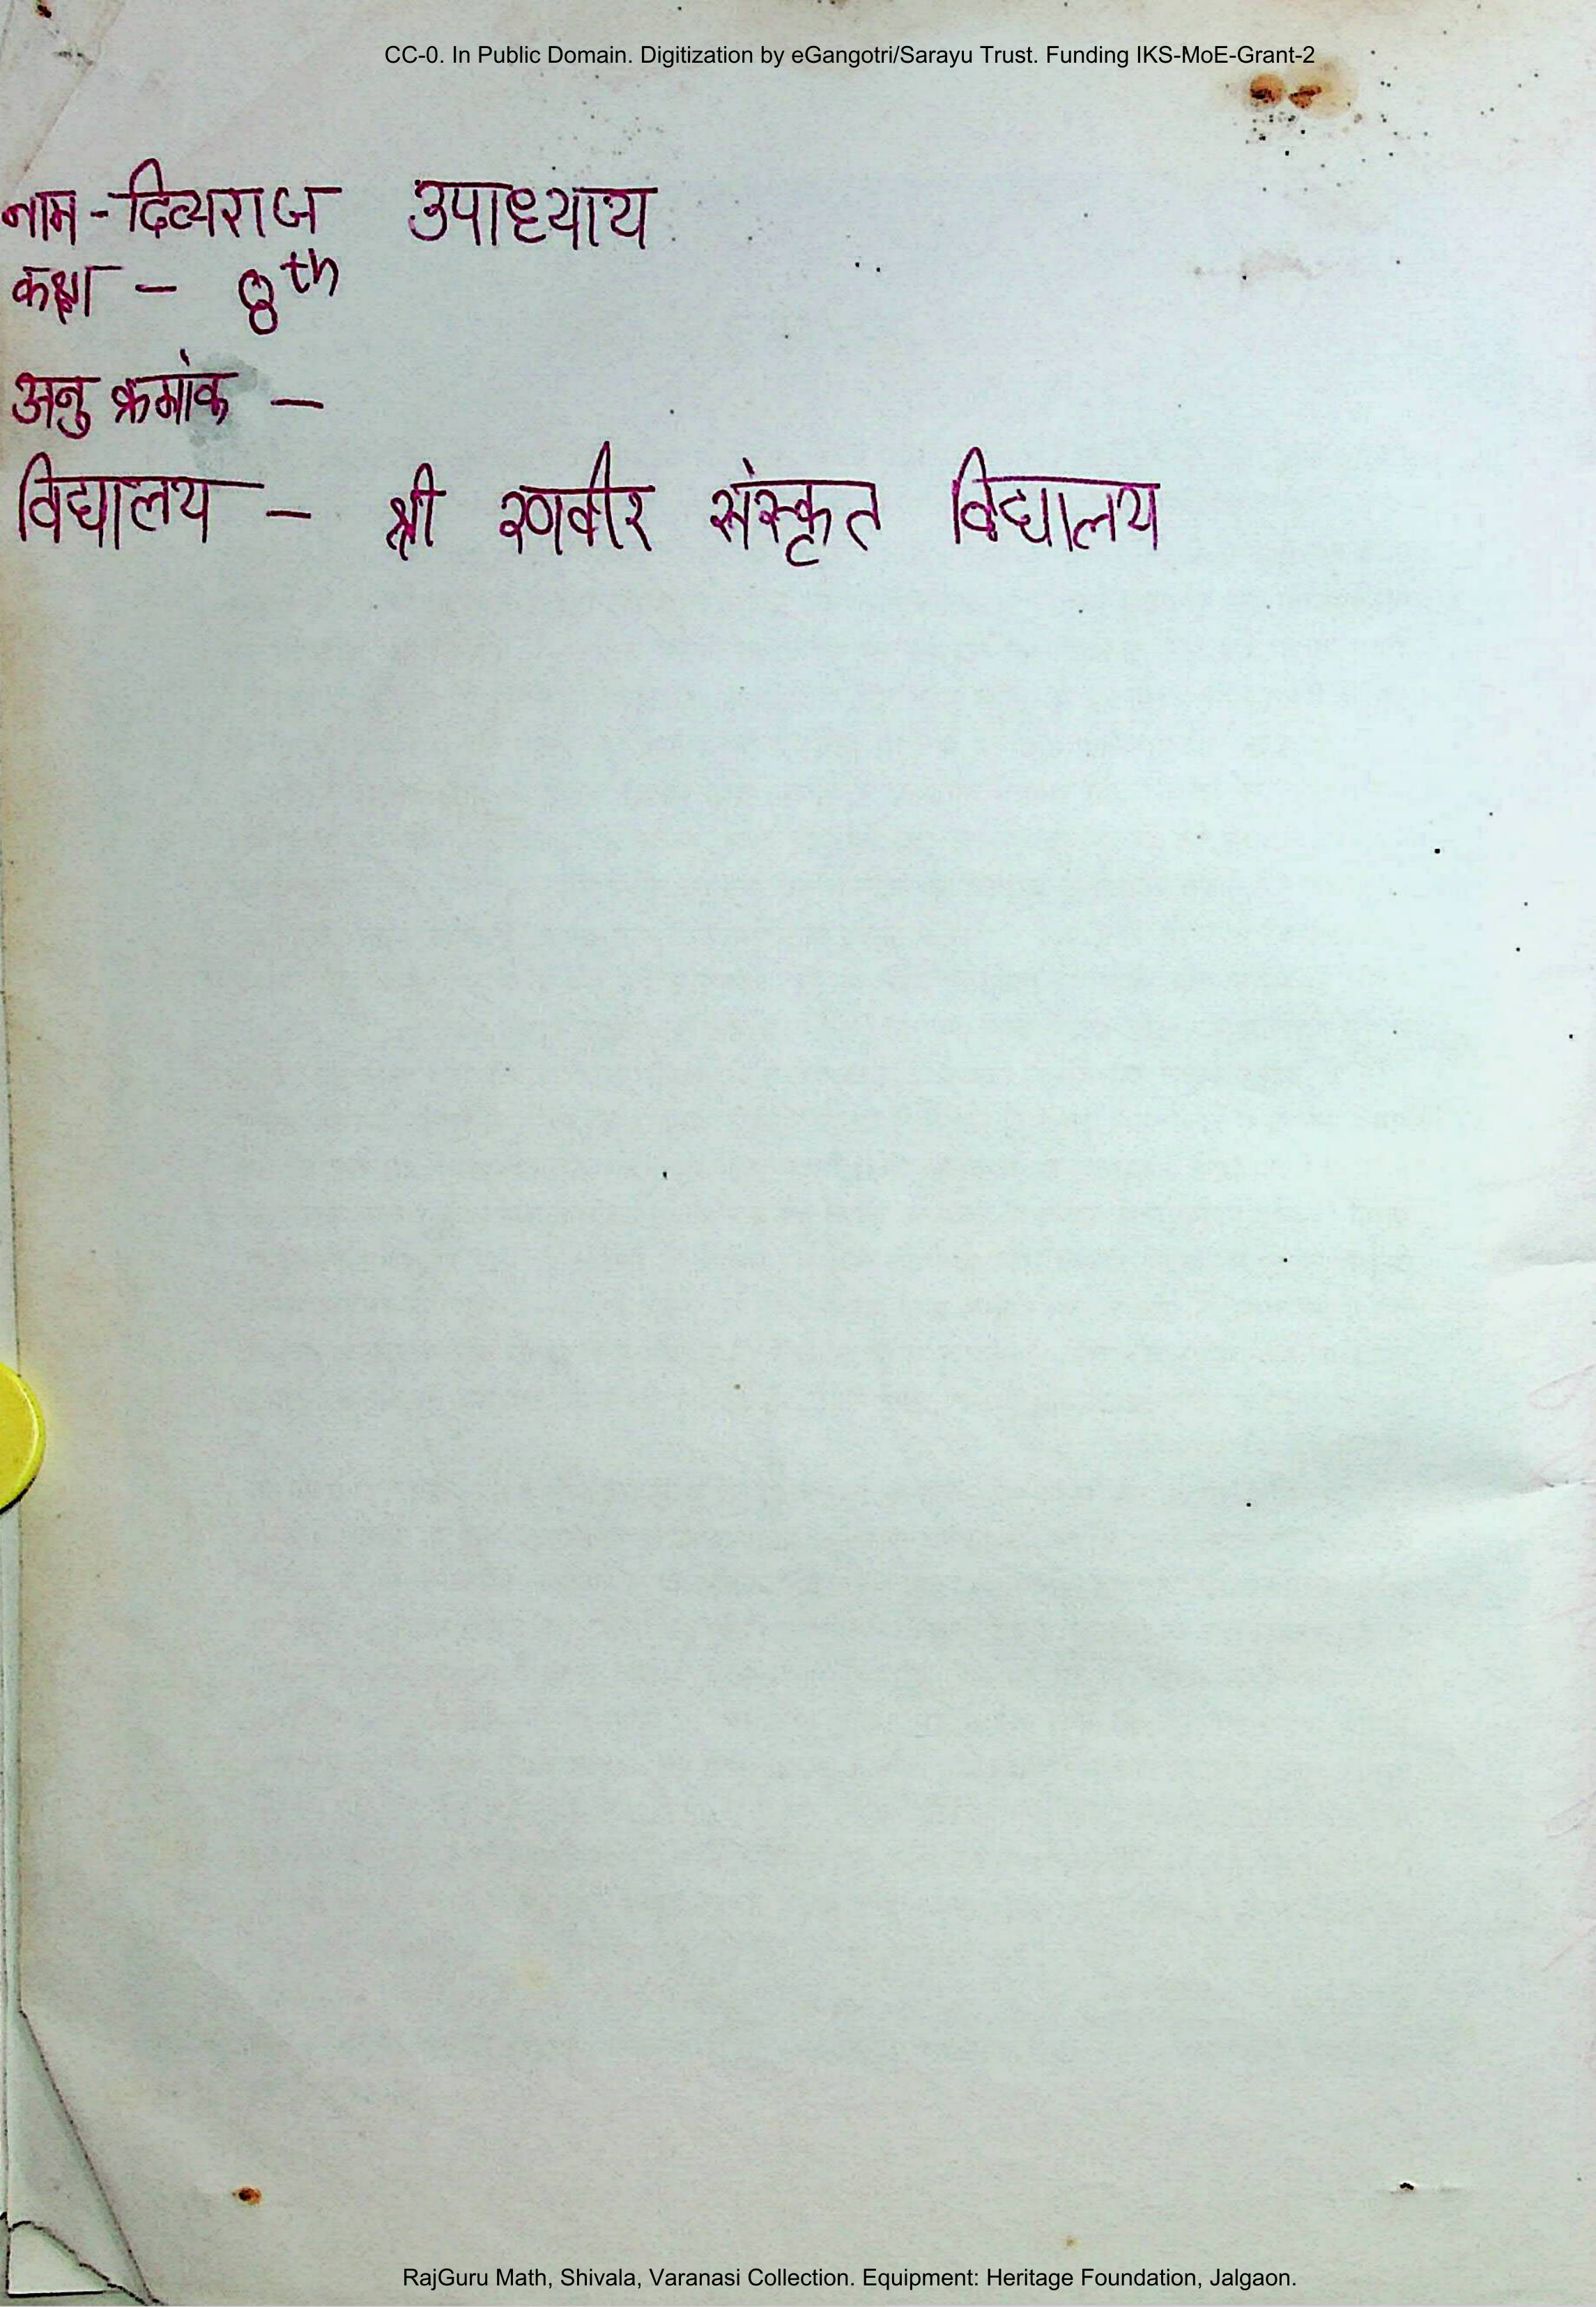 CC-0. In Public Domain. Digitization by eGangotri/Sarayu Trust. Funding IKS-MoE-Grant-2
नाम - दिव्यराज उपाध्याय
कक्षा - 8th
अनु क्रमांक -
विद्यालय - श्री रणवीर संस्कृत विद्यालय
RajGuru Math, Shivala, Varanasi Collection. Equipment: Heritage Foundation, Jalgaon.